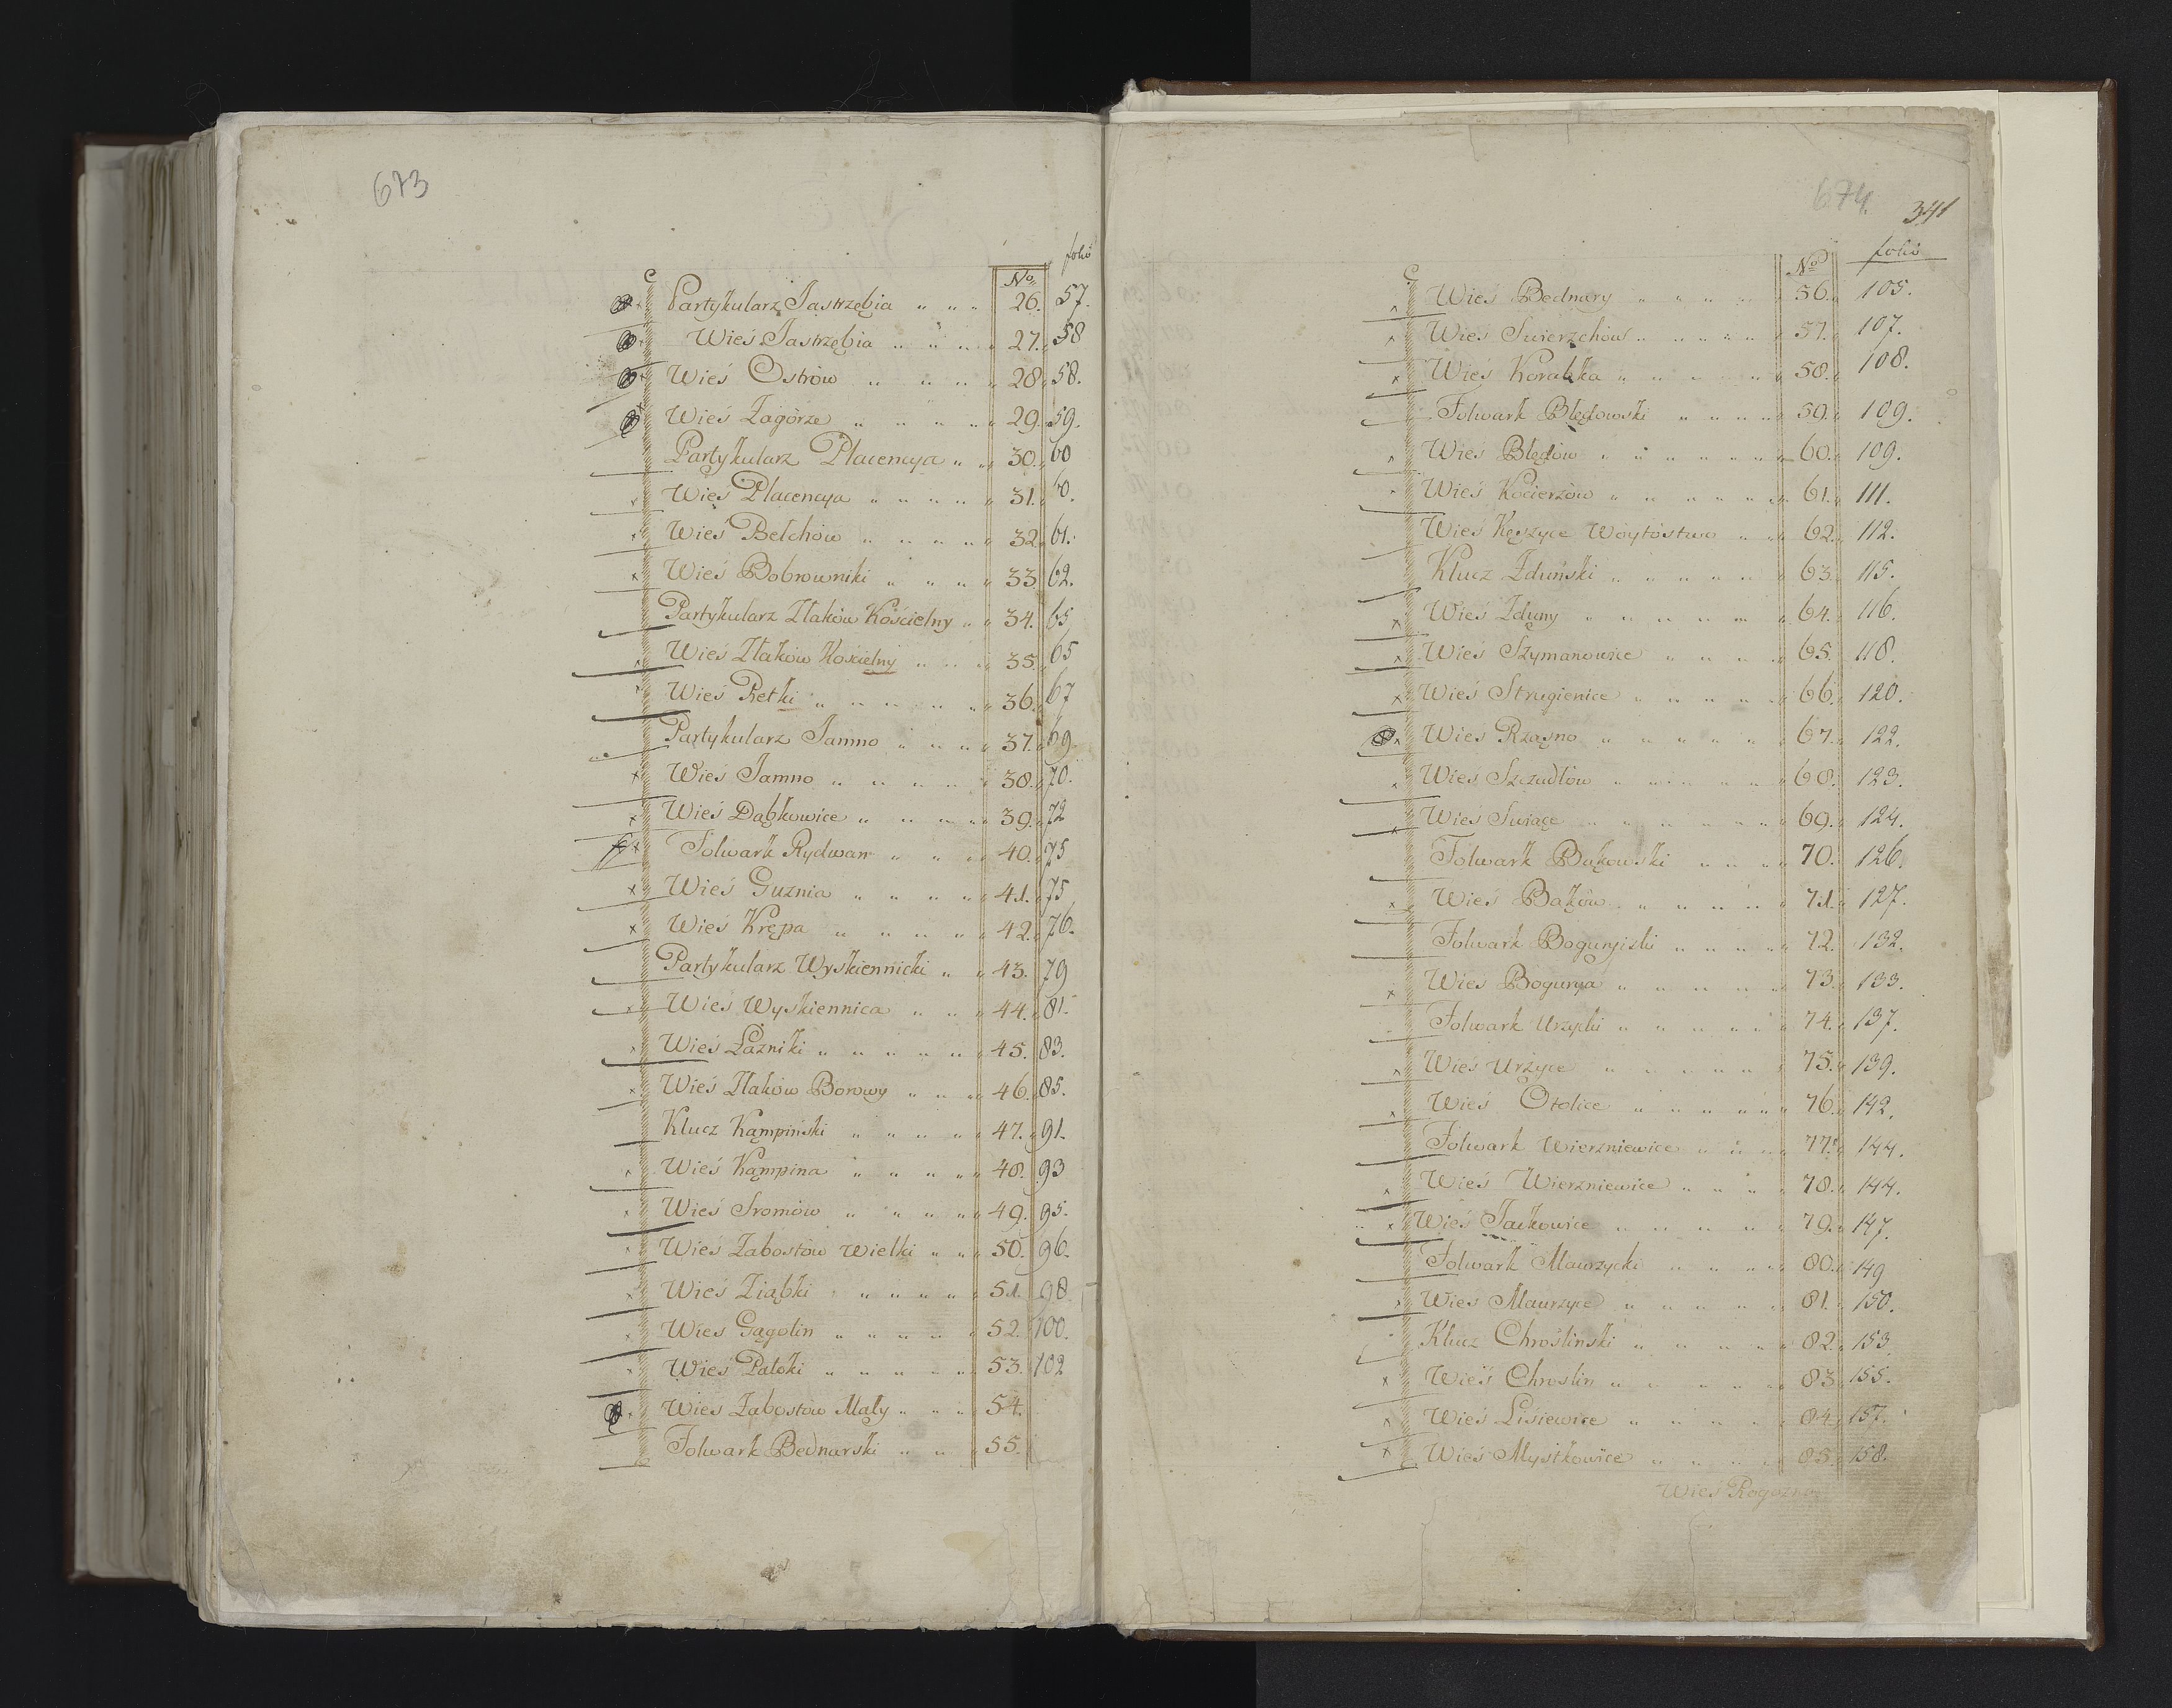 673
folio
No
Partykularz Jastrzębia „ „ „ 26. 57.
Wieś Jastrzębia „ „ „ „ 27. 58
Wieś Ostrów „ „ „ „ 28. 58.
Wieś Zagórze „ „ „ „ „ 29. 59.
Partykularz Placencya „ „ 30. 60
Wieś Placencya „ „ „ „ „ 31. 60.
Wieś Bełchów „ „ „ „ „ 32. 61.
Wieś Bobrowniki „ „ „ „ 33. 62.
Partykularz Złaków Kościelny „ „ 34. 65
Wieś Złaków Kościelny „ „ „ 35. 65
Wieś Retki „ „ „ „ „ „ 36. 67
Partykularz Jamno „ „ „ „ 37. 69
Wieś Jamno „ „ „ „ „ 38. 70.
Wieś Dąbkowice „ „ „ „ 39. 72
Folwark Rydwan „ „ „ 40. 75
Wieś Guznia „ „ „ „ „ 41. 75
Wieś Krępa „ „ „ „ „ 42. 76.
Partykularz Wyskiennicki „ „ 43. 79
Wieś Wyskiennica „ „ „ 44. 81.
Wieś Łazniki „ „ „ „ „ „ 45. 83.
Wieś Złaków Borowy „ „ „ 46. 85.
Klucz Kąmpiński „ „ „ „ „ 47. 91.
Wieś Kąmpina „ „ „ „ „ 48. 93
Wieś Sromów „ „ „ „ „ 49. 95.
Wieś Zabostów Wielki „ „ „ 50. 96.
Wieś Ziąbki „ „ „ „ „ 51. 98
Wieś Gągolin „ „ „ „ „ 52. 100.
Wieś Patoki „ „ „ „ „ 53. 102
Wieś Zabostów Mały „ „ „ 54.
Folwark Bednarski „ „ „ 55.
674.
341
No folio
Wieś Bednary „ „ „ „ „ 56. 105.
Wieś Swierzchów „ „ „ „ „ 57. 107.
Wieś Karabka „ „ „ „ „ „ 58. 108.
Folwark Błędowski „ „ „ „ „ 59. 109.
Wieś Błędów „ „ „ „ „ „ 60. 109.
Wieś Kocierzów „ „ „ „ „ „ 61. 111.
Wieś Kęszyce Woytóstwo „ „ „ 62. 112.
Klucz Zduński „ „ „ „ „ „ 63. 115.
Wieś Zduny „ „ „ „ „ „ 64. 116.
Wieś Szymanowice „ „ „ „ „ 65. 118.
Wieś Strugienice „ „ „ „ „ 66. 120.
Wieś Rząsno „ „ „ „ „ „ 67. 122.
Wieś Szczudłów „ „ „ „ „ 68. 123.
Wieś Swiące „ „ „ „ „ „ 69. 124.
Folwark Bąkowski „ „ „ „ 70. 126.
Wieś Bąków „ „ „ „ „ 71. 127.
Folwark Boguryiski „ „ „ „ „ 72. 132.
Wieś Bogurya „ „ „ „ „ „ 73. 133.
Folwark Urzycki „ „ „ „ „ „ 74. 137.
Wieś Urzyce „ „ „ „ „ „ 75. 139.
Wieś Otolice „ „ „ „ „ „ 76. 142.
Folwark Wierzniewice „ „ „ „ 77. 144.
Wieś Wierzniewice „ „ „ „ „ 78. 144.
Wieś Jackowice „ „ „ „ „ „ 79. 147.
Folwark Maurzycki „ „ „ „ „ 80. 149
Wieś Maurzyce „ „ „ „ „ „ 81. 150.
Klucz Chrośliński „ „ „ „ „ 82. 153
Wieś Chroslin „ „ „ „ „ „ 83. 155.
Wieś Lisiewice „ „ „ „ „ 84. 157.
Wieś Mystkowice „ „ „ „ „ 85. 158.
Wieś Rogozno